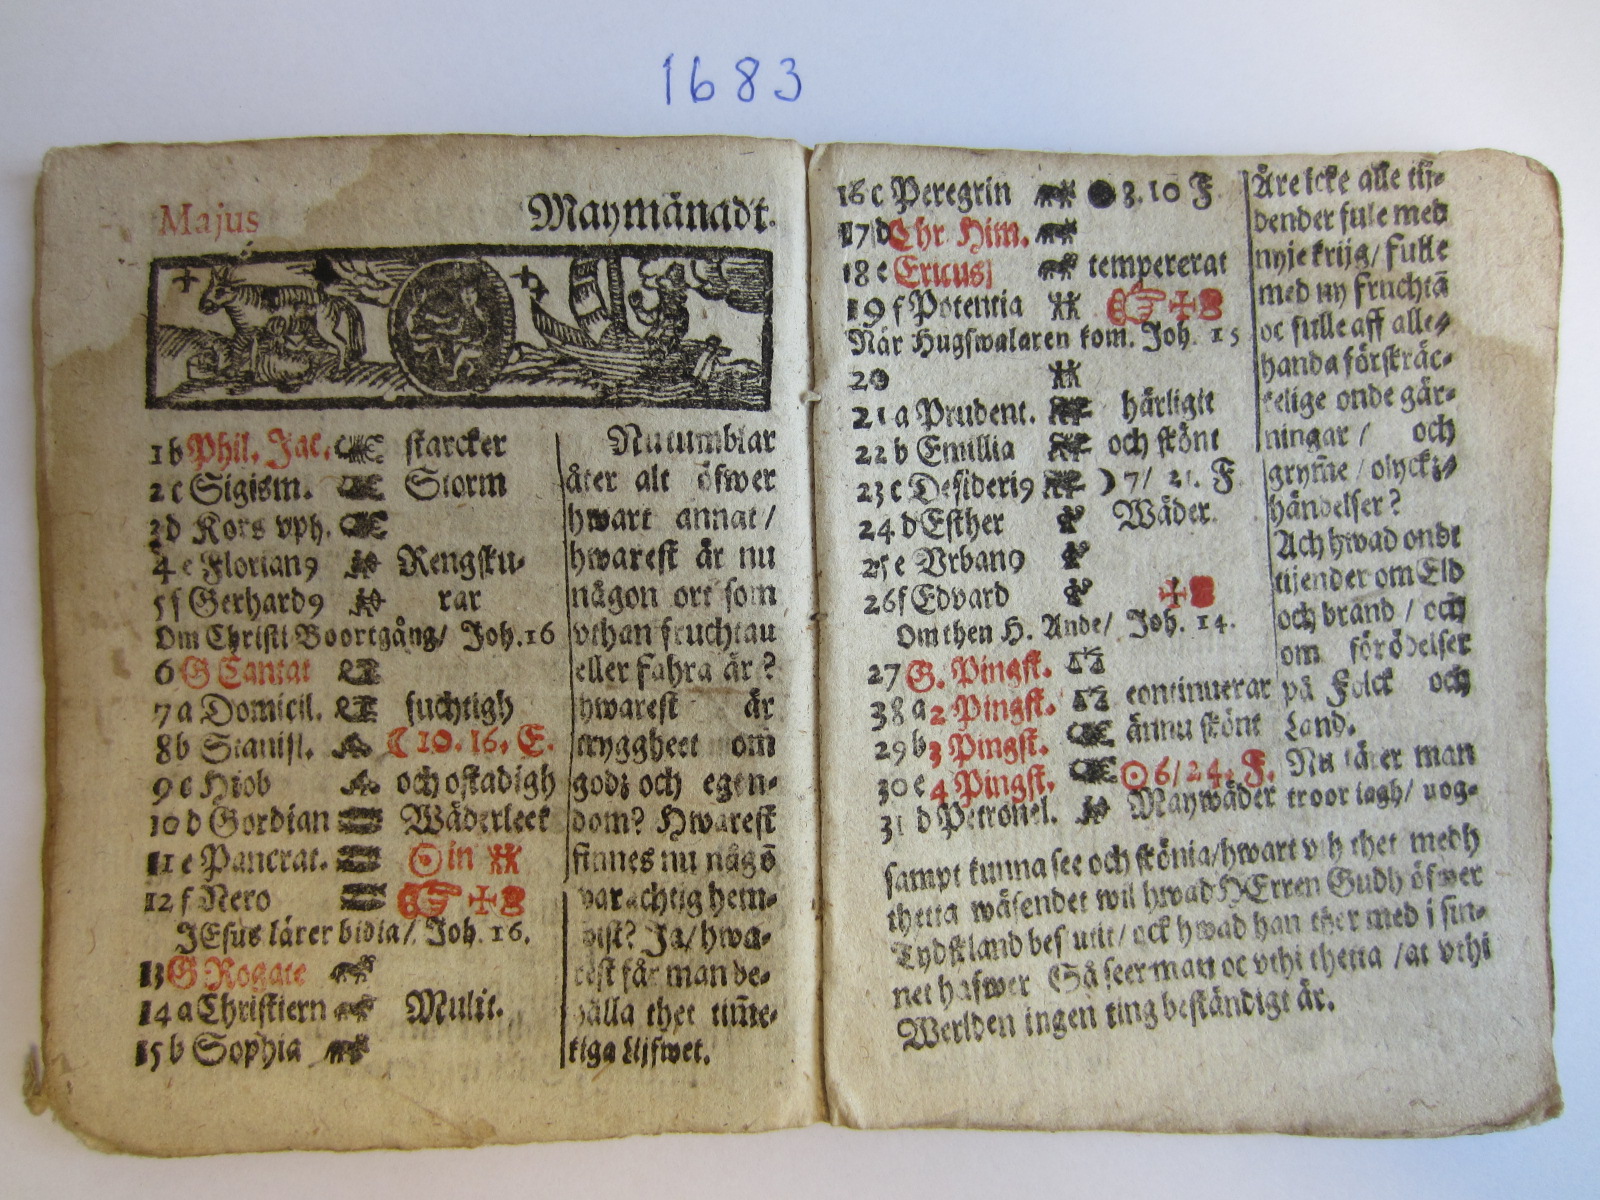 1683
Majus Maymånadt.
1 b Phil. Jac. starcker
2 c Sigism. Storm
3 d Kors vph.
4 e Florian9 Rengsku-
5 f Gerhard9 rar
Om Christi Boortgång/ Joh. 16
6 G Cantat
7 a Domicil. fuchtigh
8 b Stanisl. ☾ 10. 16. E.
9 c Hiob och ostadigh
10 d Gordian Wäderleek
11 e Pancrat. ☉ in
12 f Nero
JEsus lärer bidia/ Joh. 16.
13 G Rogate
14 a Christiern Mulit.
15 b Sophia
Nu tumblar
åter alt öfwer
hwart annat/
hwarest är nu
någon ort som
vthan fruchtan
eller fahra är?
hwarest är
tryggheet om
godz och egen-
dom? Hwarest
finnes nu någō
varachtig hem-
vist? Ja/ hwa-
rest får man be-
hålla thet tim̃e-
liga Lijfwet.
16 c Peregrin ● 3. 10 F.
17 d Chr Him.
18 e Ericus tempererat
19 f Potentia
När Hugswalaren kom. Joh. 15
20
21 a Prudent. härligit
22 b Emillia och skönt
23 c Desideri9 ☽ 7/ 21. F.
24 d Esther Wäder.
25 e Vrban9
26 f Edvard
Om then H. Ande/ Joh. 14.
27 G. Pingst.
38 a 2 Pingst. continuerar
29 b 3 Pingst. ännu skönt
30 c 4 Pingst. ☉ 6/24. F.
31 d Petronel. Maywäder
Äre icke alle tij-
dender fule med
nyje krijg/ fulle
med ny fruchtā
oc fulle aff alle-
handa förskräc-
kelige onde gär-
ningar/ och
grym̃e/ olycks-
händelser?
Ach hwad onde
tijender om Eld
och brand/ och
om förödelser
på Folck och
Land.
Nu lärer man
troor iagh/ nog-
sampt kunna see och skönia/ hwart vth thet medh
thetta wäsendet wil hwad HErren Gudh öfwer
Tydskland beslutit/ ock hwad han ther med i sin-
net hafwer Så seer man oc vthi thetta/ at vthi
Werlden ingen ting beständigt är.